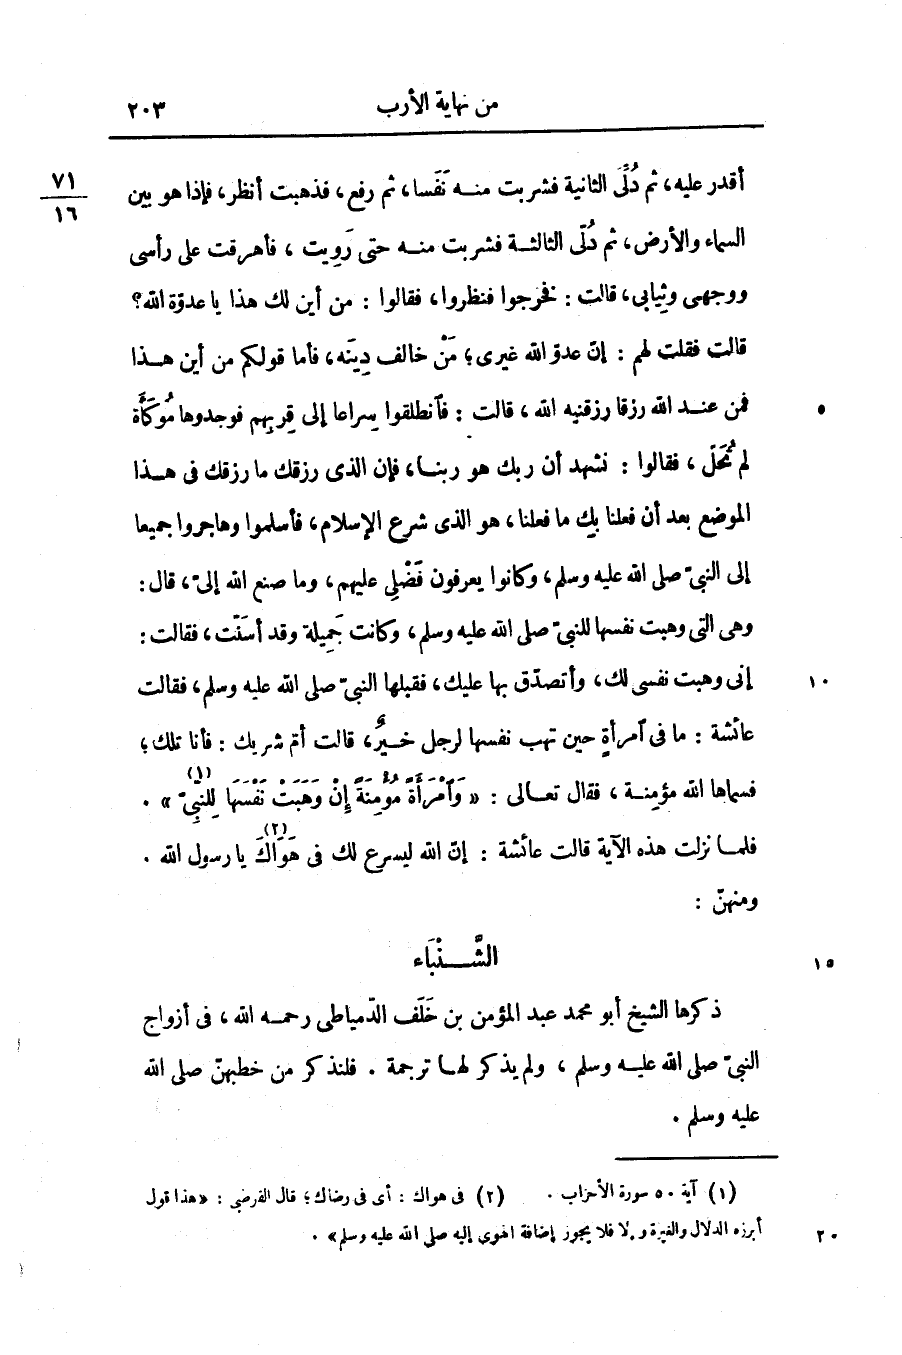 من نهاية الأرب ٢٠٣
٧١
١٦
أقدر عليه، ثم دُلِّىَ الثانية فشربت منه نَفَسا، ثم رفع، فذهبت أنظر، فإذا هو بين
السماء والأرض، ثم دُلِّى الثالثة فشربت منه حتى رَوِيت، فأهرقت على رأسى
ووجهى وثيابى، قالت: فخرجوا فنظروا، فقالوا: من أين لك هذا يا عدوّة الله؟
قالت فقلت لهم: إنّ عدوّ الله غيرى؛ مَنْ خالف دِينَه، فأما قولكم من أين هذا
فمن عند الله رزقا رزقنيه الله، قالت: فآنطلقوا سِراعا إلى قِربهم فوجدوها مُوكَأَة ٥
لم تُحَلّ، فقالوا: نشهد أن ربك هو ربنا، فإن الذى رزقك ما رزقك فى هذا
الموضع بعد أن فعلنا بِك ما فعلنا، هو الذى شرع الإسلام، فأسلموا وهاجروا جميعا
إلى النبىّ صلى الله عليه وسلم، وكانوا يعرفون فَضْلِى عليهم، وما صنع الله إلىّ، قال:
وهى التى وهبت نفسها للنبىّ صلى الله عليه وسلم، وكانت جَمِيلة وقد أسَنّت، فقالت:
إنى وهبت نفسى لك، وأتصدّق بها عليك، فقبلها النبىّ صلى الله عليه وسلم، فقالت ١٠
عائشة: ما فى آمرأةٍ حين تهب نفسها لرجل خيرٌ، قالت أمّ شريك: فأنا تلك؛
فسماها الله مؤمِنة، فقال تعالى: «وَآمْرَأَةً مُؤْمِنَةً إِنْ وَهَبَتْ نَفْسَهَا لِلنَّبِىِّ(١)».
فلما نزلت هذه الآية قالت عائشة: إنّ الله ليسرع لك فى هَوَاكَ(٢) يا رسول الله.
ومنهنّ:
الشَّنْبَاء ١٥
ذكرها الشيخ أبو محمد عبد المؤمن بن خَلَف الدّمياطى رحمه الله، فى أزواج
النبىّ صلى الله عليه وسلم، ولم يذكر لها ترجمة. فلنذكر من خطبهنّ صلى الله
عليه وسلم.
(١) آية ٥٠ سورة الأحزاب. (٢) فى هواك: أى فى رضاك؛ قال القرطبى: «هذا قول
أبرزه الدلال والغيرة وإلا فلا يجوز إضافة الهوى إليه صلى الله عليه وسلم». ٢٠